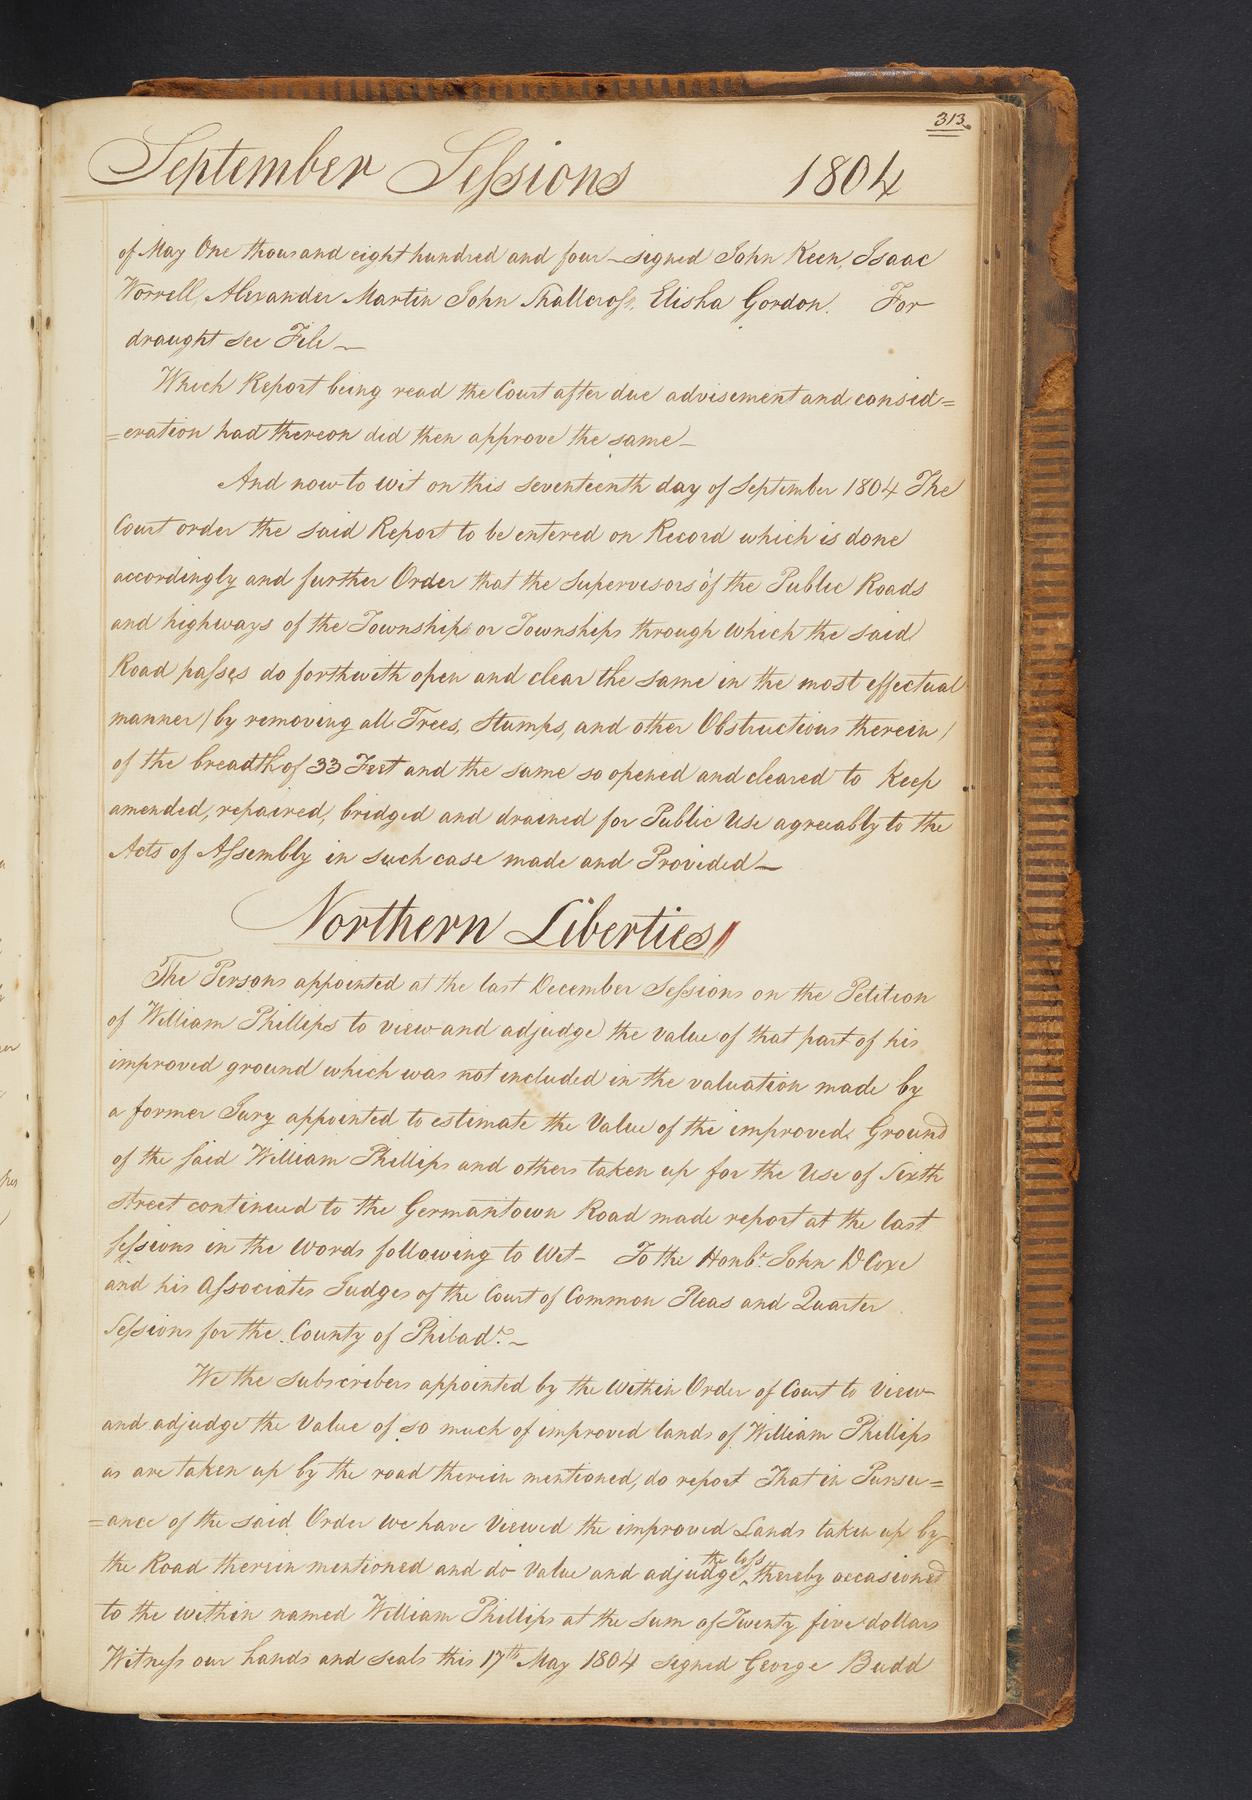 313.
September Sessions 1804
of May One thousand eight hundred and four _ signed John Keen, Isaac
Worrell, Alexander Martin John Shallcross, Elisha Gordon. For
draught see File _
Which Report being read the Court after due advisement and consid=
=eration had thereon did then approve the same _
And now to wit on this seventeenth day of September 1804 The
Court order the said Report to be entered on Record which is done
accordingly and further Order that the Supervisors of the Public Roads
and highways of the Township or Townships through which the said
Road passes do forthwith open and clear the same in the most effectual
manner / by removing all Trees, Stumps, and other Obstructions therein /
of the breadth of 33 Feet and the same so opened and cleared to Keep
amended, repaired, bridged and drained for Public Use agreeably to the
Acts of Assembly in such case made and Provided _
Northern Liberties //
The Persons appointed at the last December Sessions on the Petition
of William Phillips to view and adjudge the value of that part of his
improved ground which was not included in the valuation made by
a former Jury appointed to estimate the Value of the improved Ground
of the said William Phillips and others taken up for the Use of Sixth
Street continued to the Germantown Road made report at the last
Sessions in the Words following to Wit _ To the Honble. John D Coxe
and his Associates Judges of the Court of Common Pleas and Quarter
Sessions for the County of Philada. _
We the subscribers appointed by the within Order of Court to View
and adjudge the Value of so much of improved lands of William Phillips
as are taken up by the road therein mentioned, do report That in Pursu=
=ance of the said Order we have Viewed the improved Lands taken up by
the Road therein mentioned and do Value and adjudge ^the loss thereby occasioned
to the within named William Phillips at the sum of Twenty five dollars
Witness our hands and seals this 17th May 1804 signed George Budd